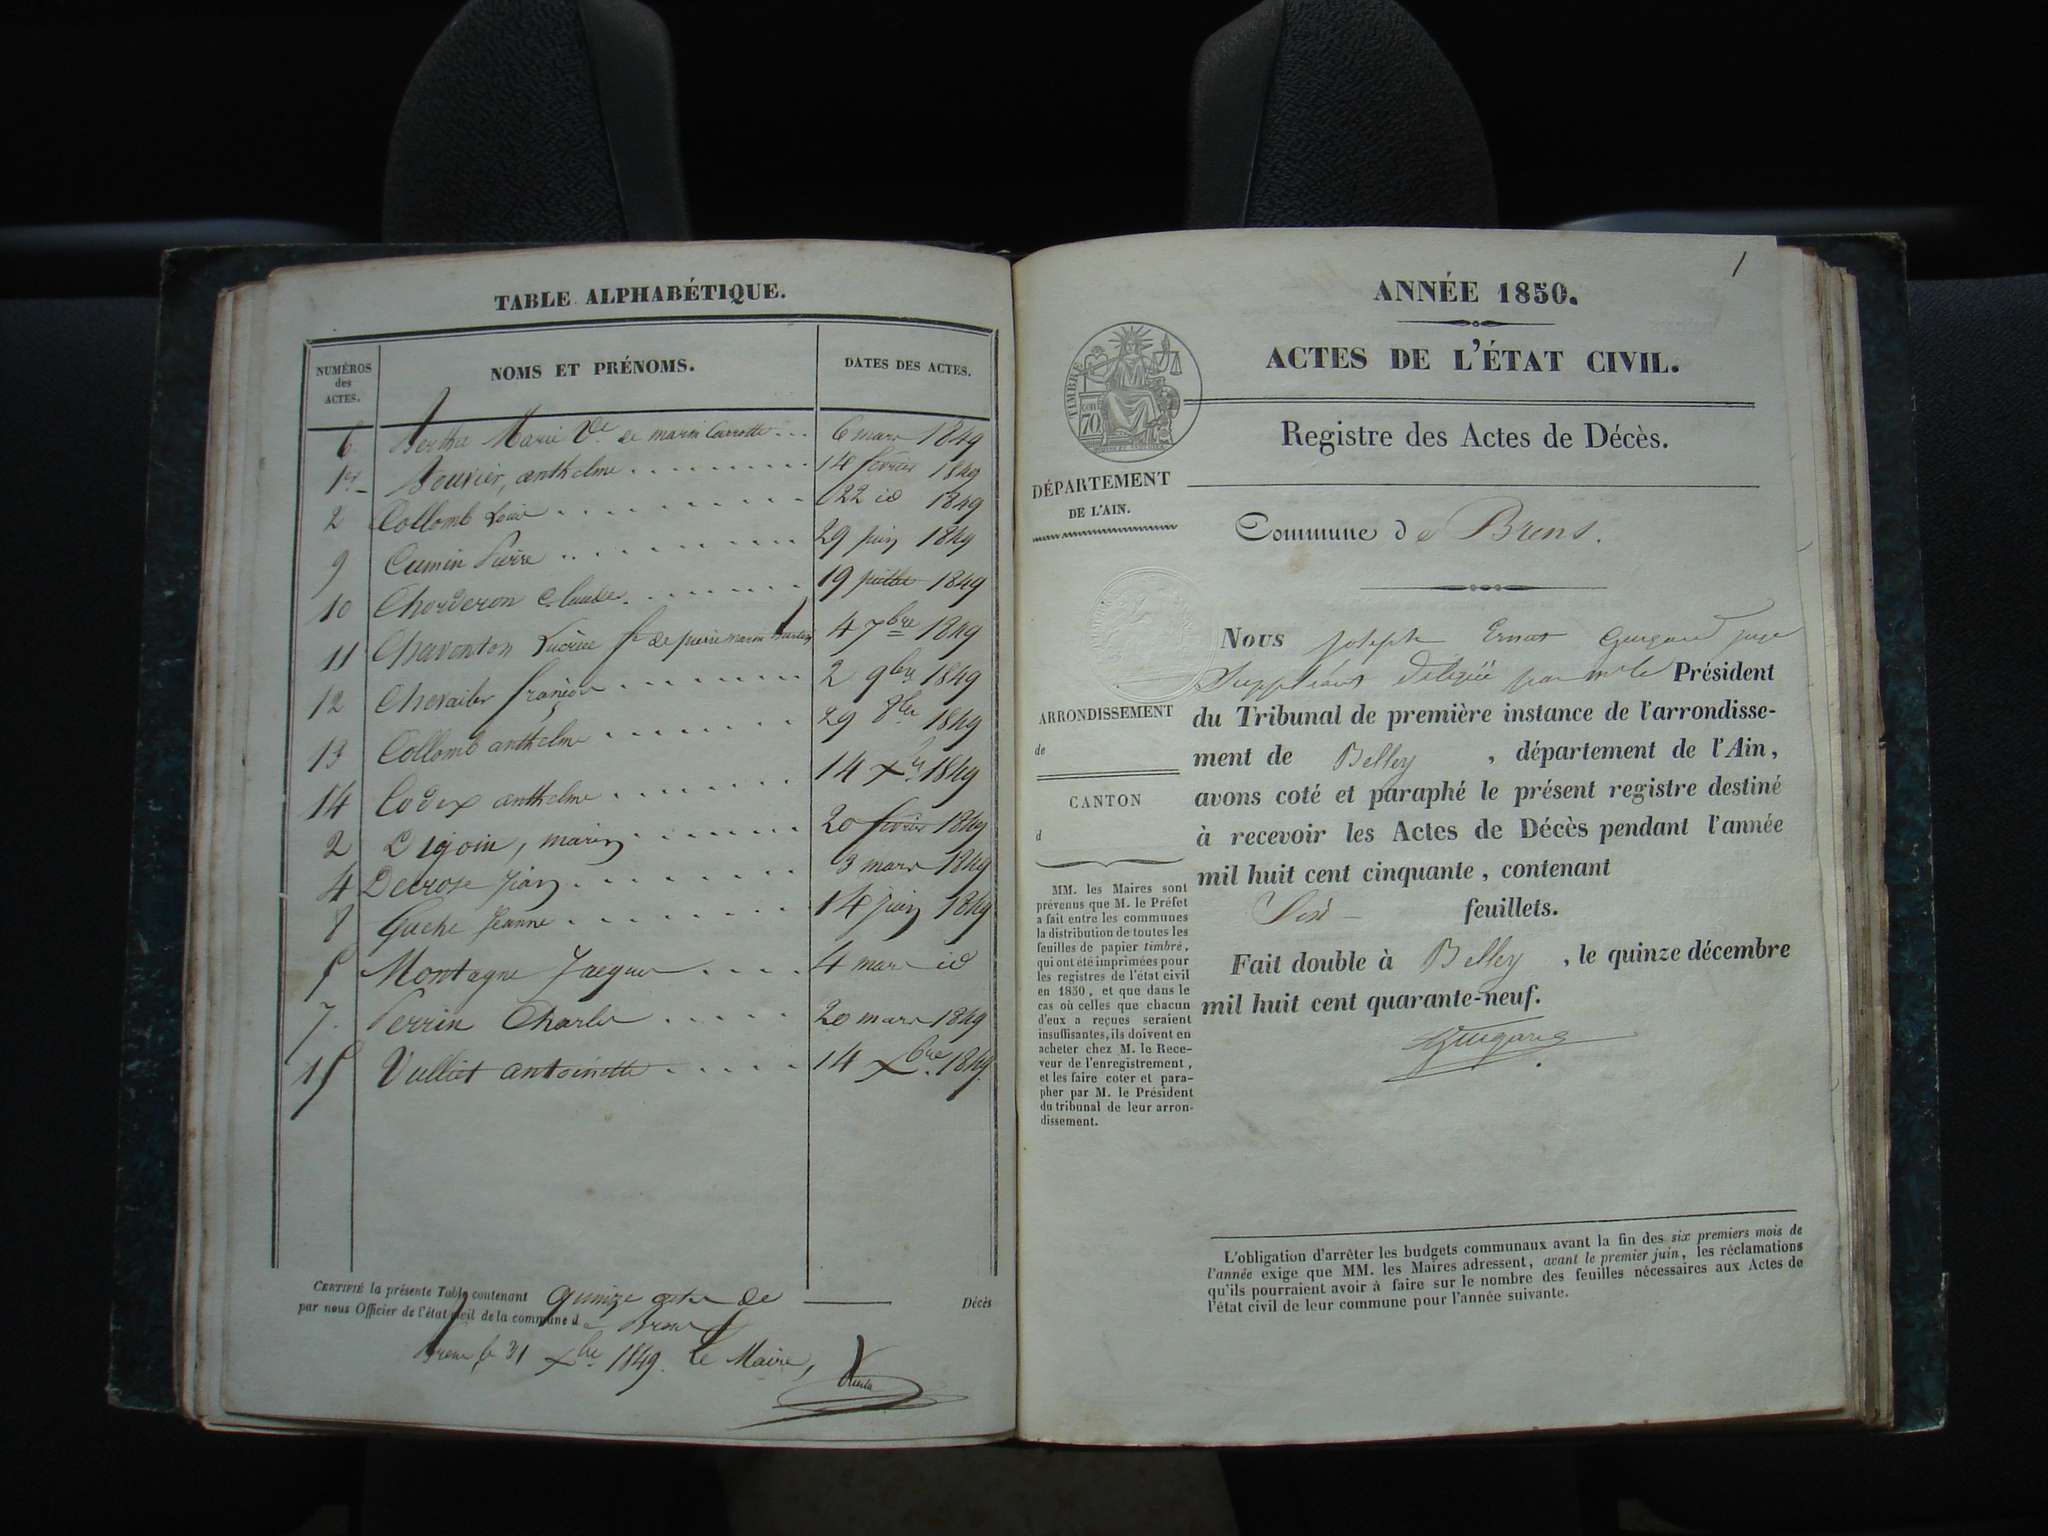 TABLE ALPHABÉTIQUE.
NUMÉROS
des
ACTES.
NOMS ET PRÉNOMS.
DATES DES ACTES.
6 Bertha Marie Ve de marin Carrotte ... 6 mars 1849
1er Bouvier, anthelme 14 février 1849
2 Collomb Louis 22 id 1849
9 Cumin Pierre 29 juin 1849
10 Chorderon Claude 19 juillet 1849
11 Chaventon Lucrèce fe de pierre marin 4 7bre 1849
12 Chevailer françois 2 9bre 1849
13 Collomb anthelme 29 8bre 1849
14 Codex anthelme 14 Xbre 1849
2 Digoin, marin 20 février 1849
4 Decrose Jean 3 mars 1849
8 Gache Jeanne 14 juin 1849
5 Montagne Jacques 4 mars id
7. Perrin Charles 20 mars 1849
15 Vulliet antoinette 14 Xbre 1849.
CERTIFIÉ la présente Table contenant quinze actes de Décès
par nous Officier de l'état civil de la commune de Brens
Brens le 31 Xbre 1849. Le Maire,
1
ANNÉE 1850.
ACTES DE L'ÉTAT CIVIL.
TIMBRE
70
Registre des Actes de Décès.
DÉPARTEMENT
DE L'AIN.
Commune de Brens.
Nous Joseph Ernest Guigard juge
Suppléant délégué par mr le Président
du Tribunal de première instance de l'arrondisse-
ment de Belley, département de l'Ain,
avons coté et paraphé le présent registre destiné
à recevoir les Actes de Décès pendant l'année
mil huit cent cinquante, contenant
feuillets.
Fait double à Belley, le quinze décembre
mil huit cent quarante-neuf.
Guigard
ARRONDISSEMENT
de
CANTON
d
MM. les Maires sont
prévenus que M. le Préfet
a fait entre les communes
la distribution de toutes les
feuilles de papier timbré,
qui ont été imprimées pour
les registres de l'état civil
en 1850, et que dans le
cas où celles que chacun
d'eux a reçues seraient
insuffisantes, ils doivent en
acheter chez M. le Rece-
veur de l'enregistrement,
et les faire coter et para-
pher par M. le Président
du tribunal de leur arron-
dissement.
L'obligation d'arrêter les budgets communaux avant la fin des six premiers mois de
l'année exige que MM. les Maires adressent, avant le premier juin, les réclamations
qu'ils pourraient avoir à faire sur le nombre des feuilles nécessaires aux Actes de
l'état civil de leur commune pour l'année suivante.